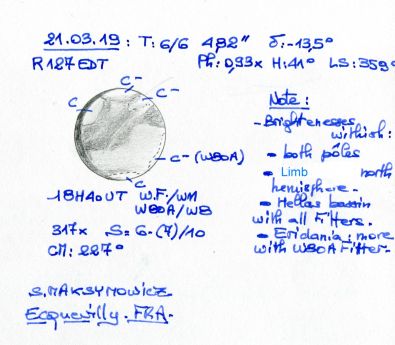 21.03.19 : T: 6/6 4,82" δ: -13,5°
R 127 EDT Ph: 0,93x H: 41° LS: 359°
C-
C
C-
C- (W80A)
C
18H40UT W.F./WM
W80A/WB
317x S= 6-(7)/10
CM: 227°
Note :
- Brightenesses
withish :
- both pôles
- Limb north
hemisphere.
- Hellas bassin
with all Filters.
- Eridania : more
with W80A Filter.
S.MAKSYMOWICZ
Ecquevilly. FRA.